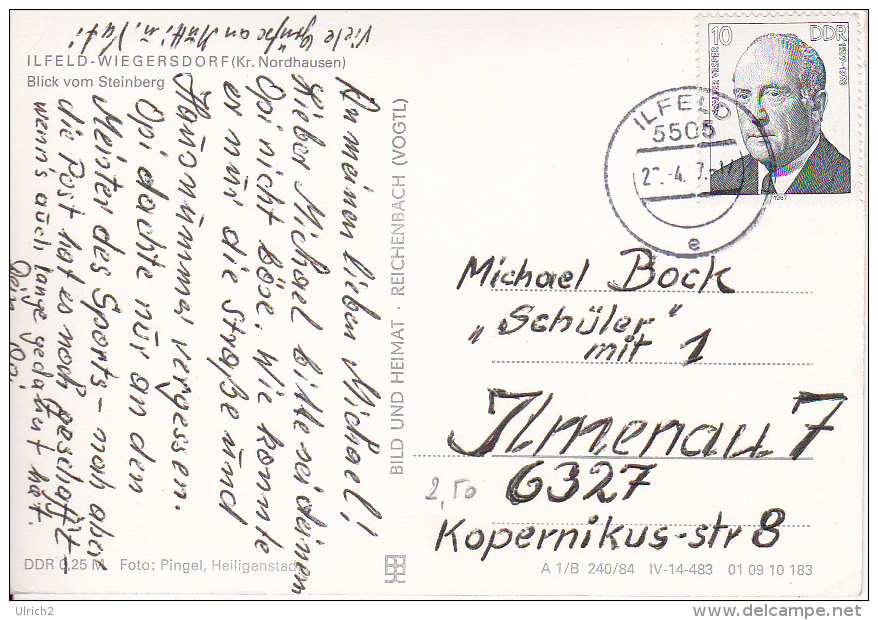 Viele Grüße an Mutti u. Vati
ILFELD-WIEGERSDORF (Kr. Nordhausen)
Blick vom Steinberg
An meinen lieben Michael!
Lieber Michael bitte sei deinem
Opi nicht böse. Wie konnte
er nur die Straße und
Hausnummer vergessen.
Opi dachte nur an den
Meister des Sports – noch aber
die Post hat es noch geschafft –
wenn's auch lange gedauert hat.
Dein Opi
DDR 0,25 M Foto: Pingel, Heiligenstadt
BILD UND HEIMAT · REICHENBACH (VOGTL)
10 DDR
1987
ILFELD
5505
e
Michael Bock
„Schüler"
mit 1
Ilmenau 7
2,50
6327
Kopernikus-str 8
A 1/B 240/84 IV-14-483 01 09 10 183
Ulrich2
www.delcampe.net